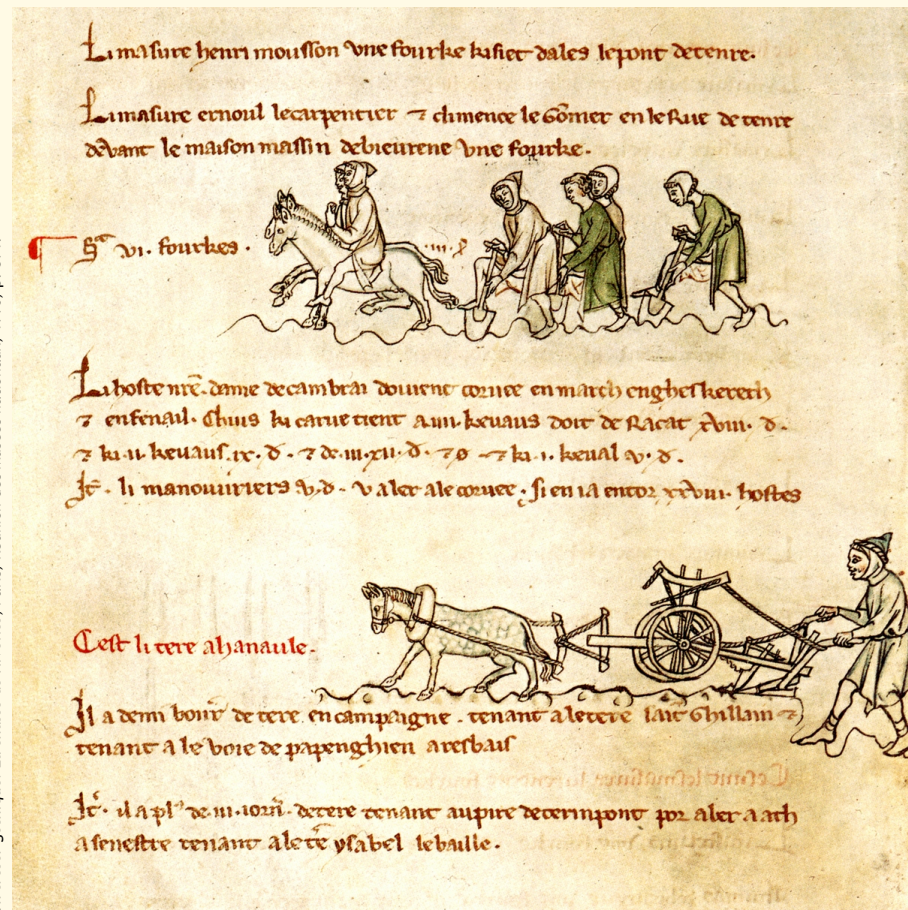 Li masure henri mousson vne fourke ki siet dales le pont de tenre.
Li masure ernoul le carpentier ⁊ climence le Gomer en le Rue de tenre
devant le maison massin de bieurene vne fourke.
vi. fourkes.
Li hoste nre dame de cambrai doivent coruee en march en gheskerech
⁊ en fenail. Chius ki carue tient a .iiii. kevaus doit de Racat xviii. d.
⁊ ki .ii. kevaus .ix. d. ⁊ de .iii. xii. d. ⁊ ki .i. keval v. d.
It. li manouuriers v. d. v aler a le coruee. Si en i a entor xxviii hostes
Cest li tere ahanaule.
Il a demi bonr de tere en campaigne. tenant a le tere saint Ghillain ⁊
tenant a le voie de papenghien a resbais
It. il a pl de .iii. iorn. de tere tenant au pire de tenrinpont por aler a ath
a senestre tenant a le te ysabel le baille.